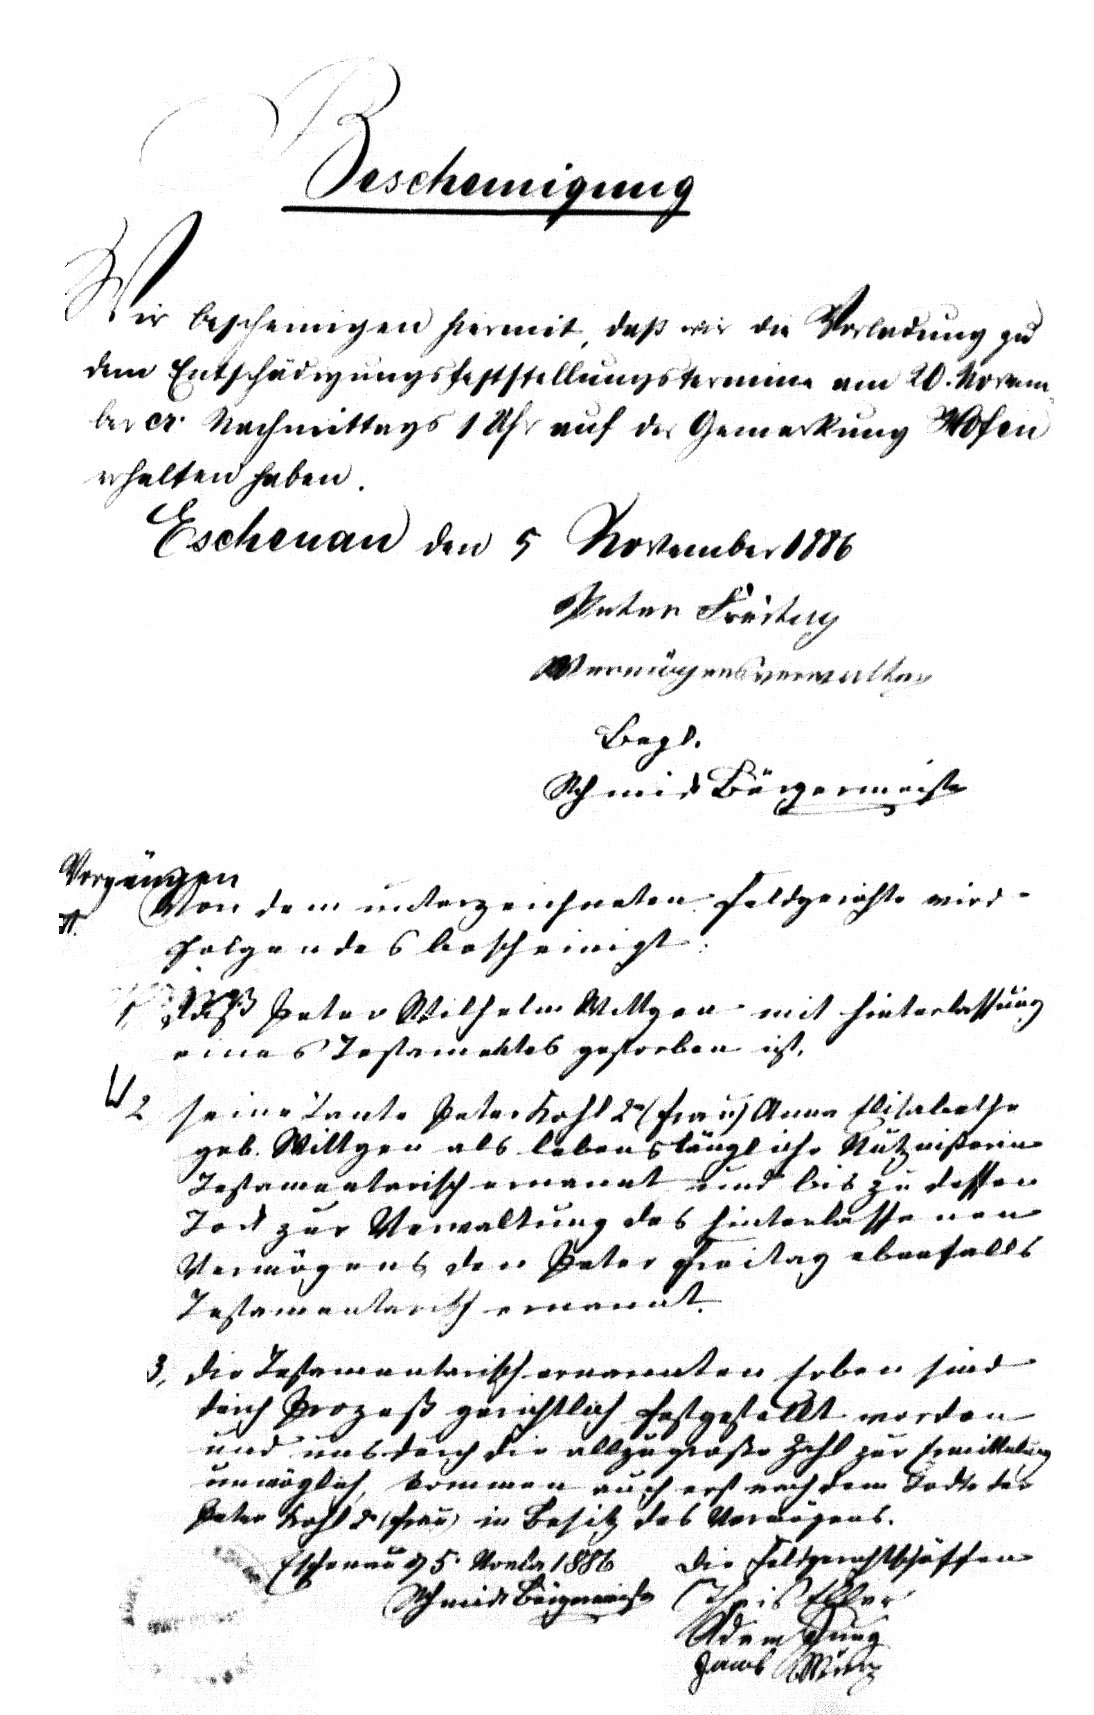 Bescheinigung
Wir bescheinigen hiermit, daß wir die Vorladung zu
dem Entschädigungsfeststellungstermine am 20. Novem-
ber cr. Nachmittags 1 Uhr auf der Gemarkung Hofen
erhalten haben.
Eschenau den 5 November 1886
Peter Freitag
Vermögensverwalter
Begl.
Schmidt Bürgermeister
Von dem unterzeichneten Feldgerichte wird
folgendes bescheinigt:
1, daß Peter Wilhelm Wittgen mit hinterlassung
eines Testamentes gestorben ist.
2 seine Tante Peter Kohl 2r (Frau) Anna Elisabethe
geb. Wittgen als lebenslängliche Nutznißerin
Testamentarisch ernannt und bis zu dessen
Tod zur Verwaltung des hinterlassenen
Vermögens den Peter Freitag ebenfalls
Testamentarisch ernannt.
3, die Testamentarisch ernannten Erben sind
durch Prozeß gerichtlich festgestellt worden
und uns durch die allzugroße Zahl zur Ermittelung
unmöglich, kommen auch erst nach dem Tode der
Peter Kohl 2r (Frau) in Besitz des Vermögens.
Eschenau d 5. Novbr 1886 Die Feldgerichtschöffen
Schmidt Bürgermeister Theis Eller
Adam Jung
Jacob